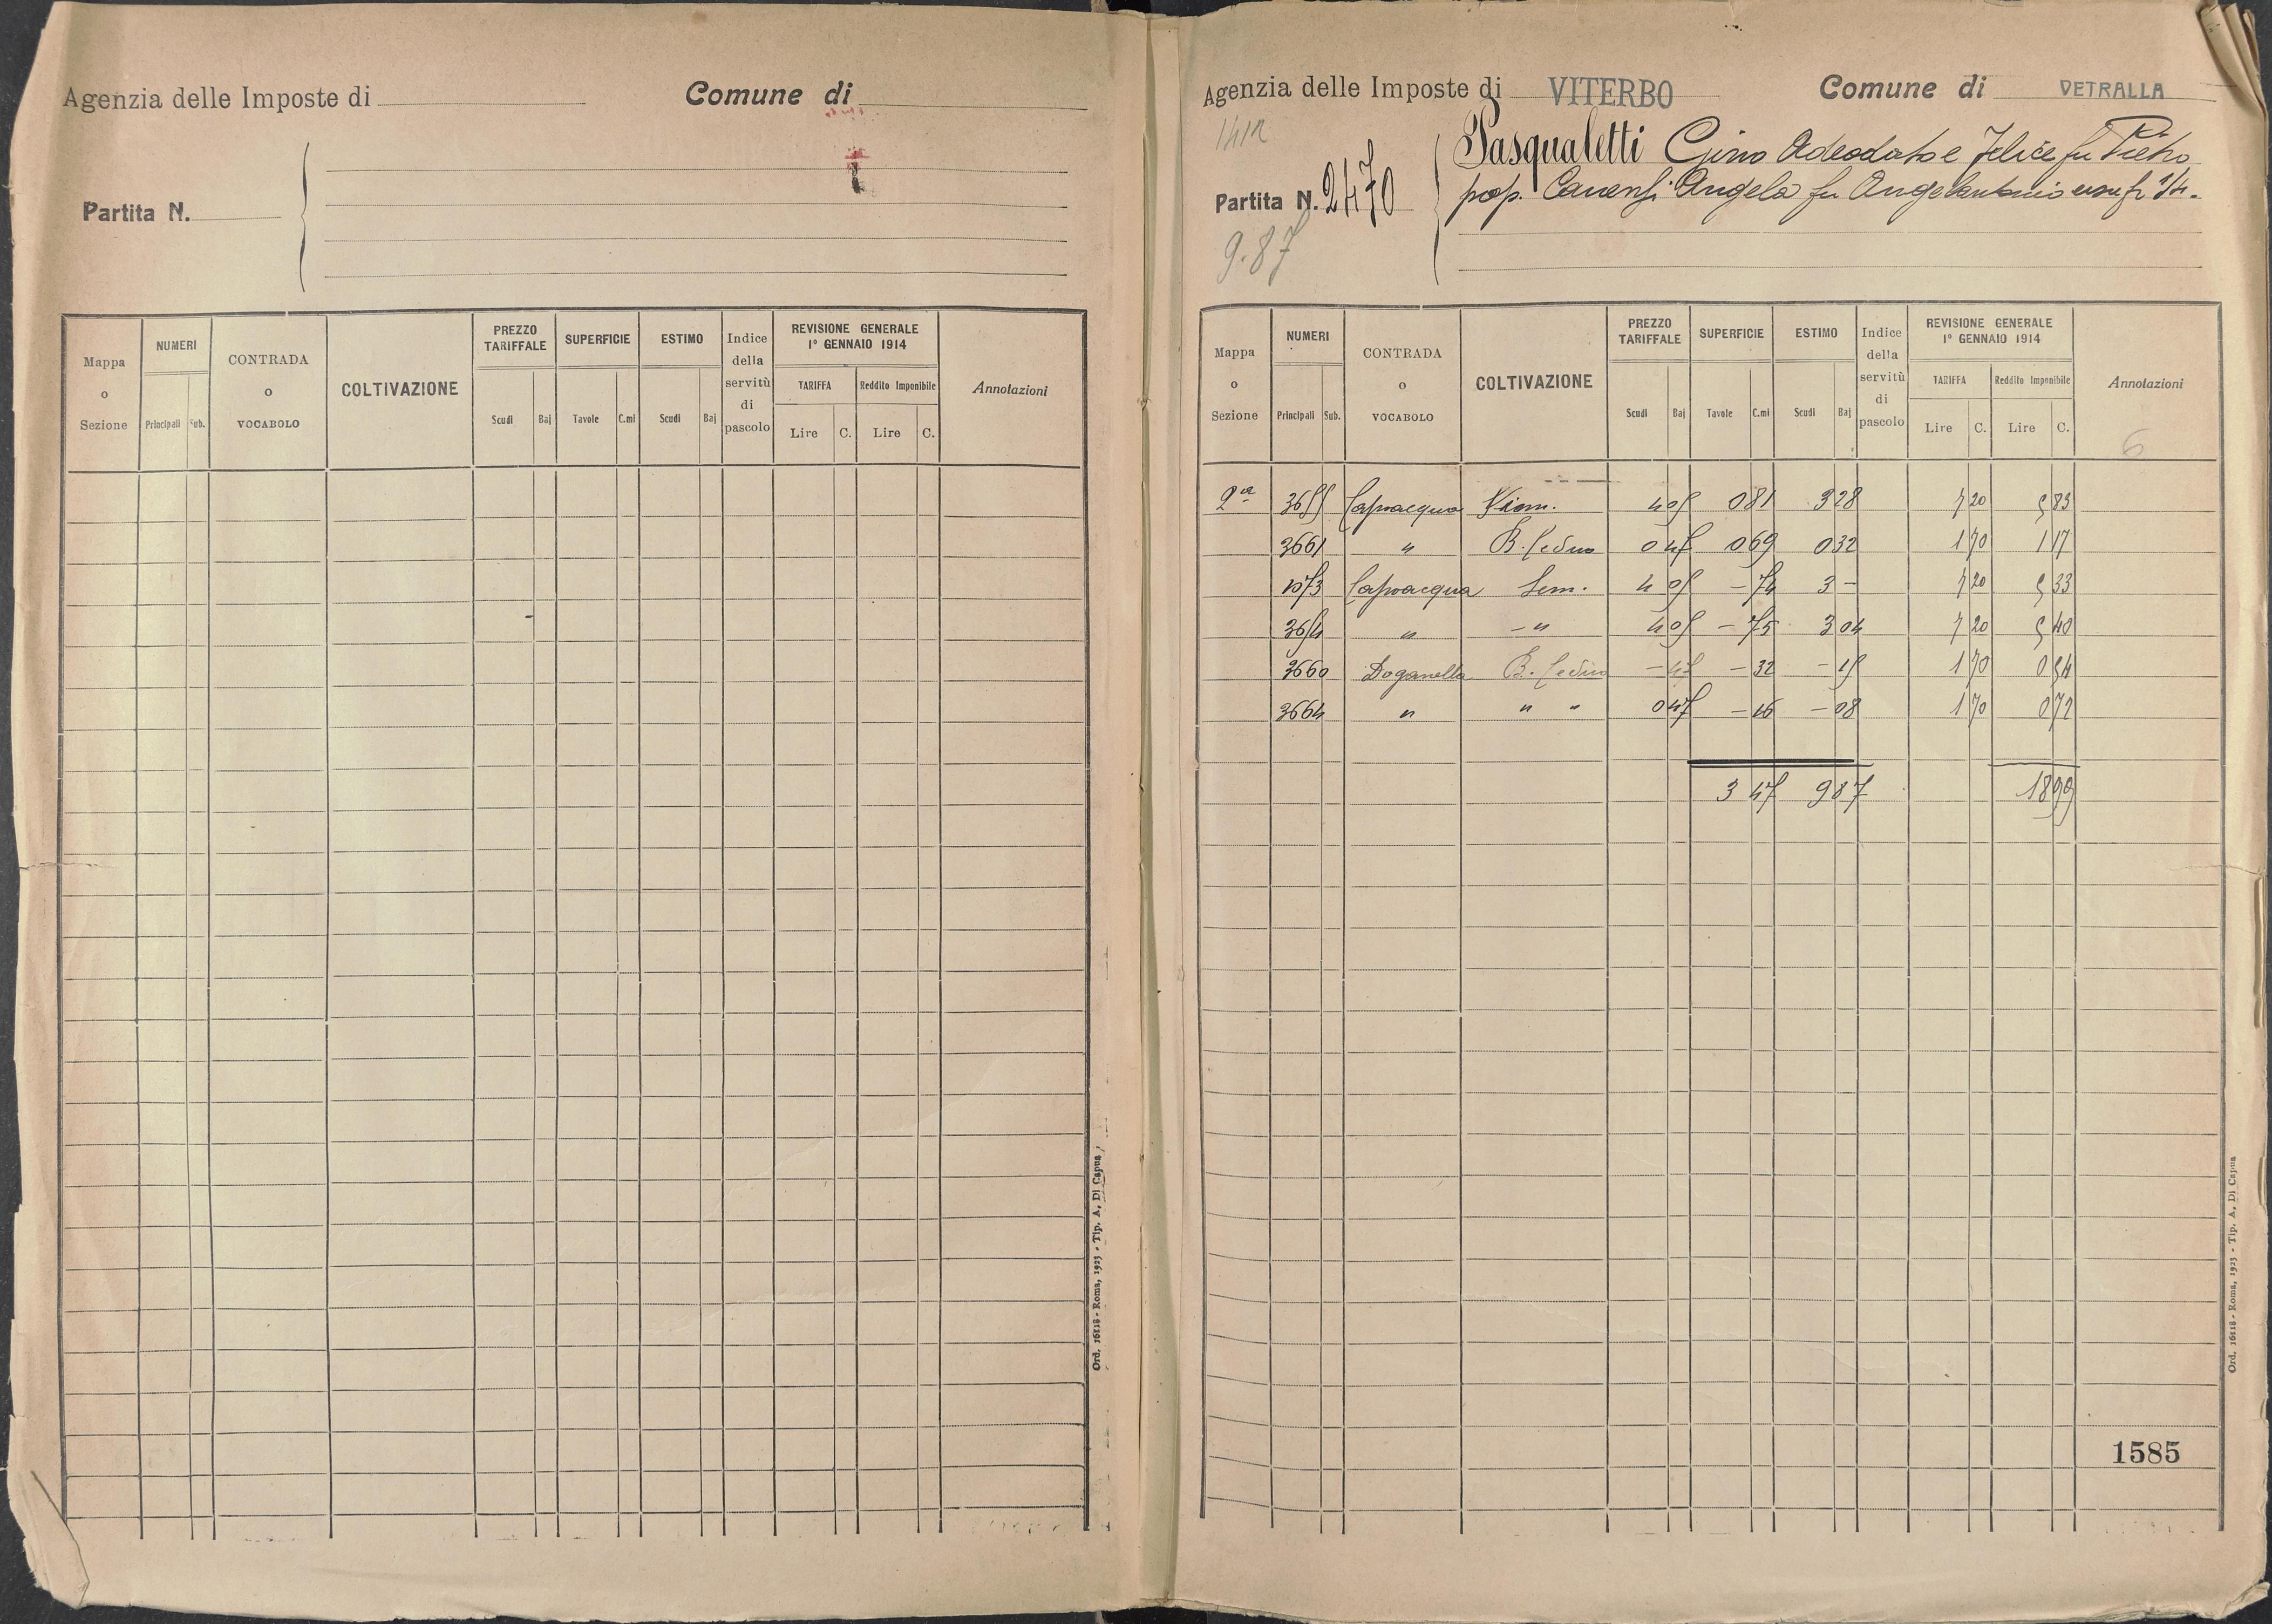 Agenzia delle Imposte di
Comune di
Partita N.
Mappa o Sezione
NUMERI
Principali
Sub.
CONTRADA o VOCABOLO
COLTIVAZIONE
PREZZO TARIFFALE
Scudi
Baj
SUPERFICIE
Tavole
C.mi
ESTIMO
Scudi
Baj
Indice della servitù di pascolo
REVISIONE GENERALE
1° GENNAIO 1914
TARIFFA
Lire
C.
Reddito Imponibile
Lire
C.
Annotazioni
Ord. 16118 - Roma, 1923 - Tip. A. Di Capua
Agenzia delle Imposte di VITERBO
Comune di VETRALLA
Partita N. 2470
9.87
Pasqualetti Gino Adeodato e Felice fu Pietro
prop. Angela fu Angelantonio usufr 1/4.
Mappa o Sezione
NUMERI
Principali
Sub.
CONTRADA o VOCABOLO
COLTIVAZIONE
PREZZO TARIFFALE
Scudi
Baj
SUPERFICIE
Tavole
C.mi
ESTIMO
Scudi
Baj
Indice della servitù di pascolo
REVISIONE GENERALE
1° GENNAIO 1914
TARIFFA
Lire
C.
Reddito Imponibile
Lire
C.
Annotazioni
6
2a 3655 Capoacqua 4 05 0 81 3 28 7 20 5 83
3661 " B. Ceduo 0 47 0 69 0 32 1 70 1 17
1073 Capoacqua Sem. 4 05 - 74 3 - 7 20 5 33
3654 " - " 4 05 - 75 3 04 7 20 5 40
3660 Doganella B. Ceduo - 47 - 32 - 15 1 70 0 54
3664 " " " 0 47 - 16 - 08 1 70 0 72
3 47 9 87 18 99
1585
Ord. 16118 - Roma, 1923 - Tip. A. Di Capua